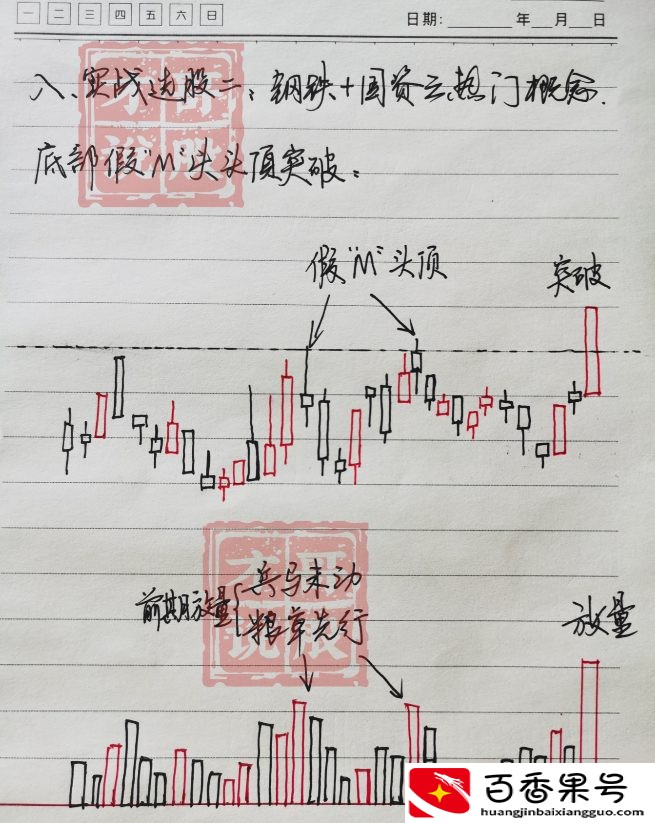 一 二 三 四 五 六 日
日期: 年 月 日
八、实战选股二: 钢铁+国资云热门概念.
底部假"M"头头顶突破:
假"M"头顶
突破
前期放量{兵马未动
粮草先行
放量
百香果号
huangjinbaixiangguo.com